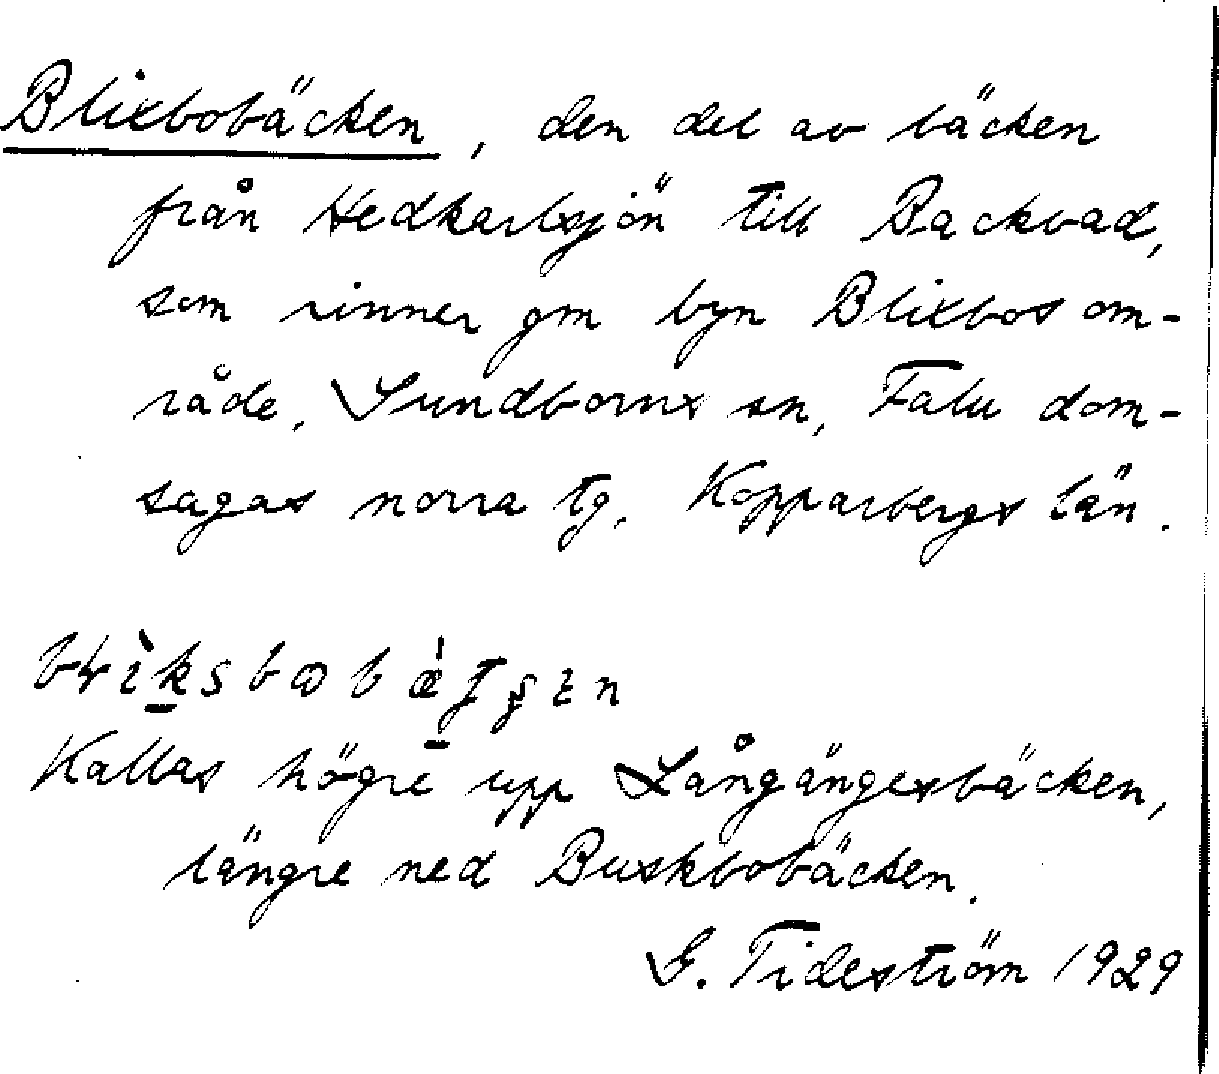 Blixbobäcken, den del av bäcken
från Hedkarlsjön till Backvad,
som rinner gm byn Blixbos om-
råde, Sundborns sn, Falu dom-
sagas norra tg, Kopparbergs län.
Kallas högre upp Långängesbäcken,
längre ned Buskbobäcken.
G. Tideström 1929